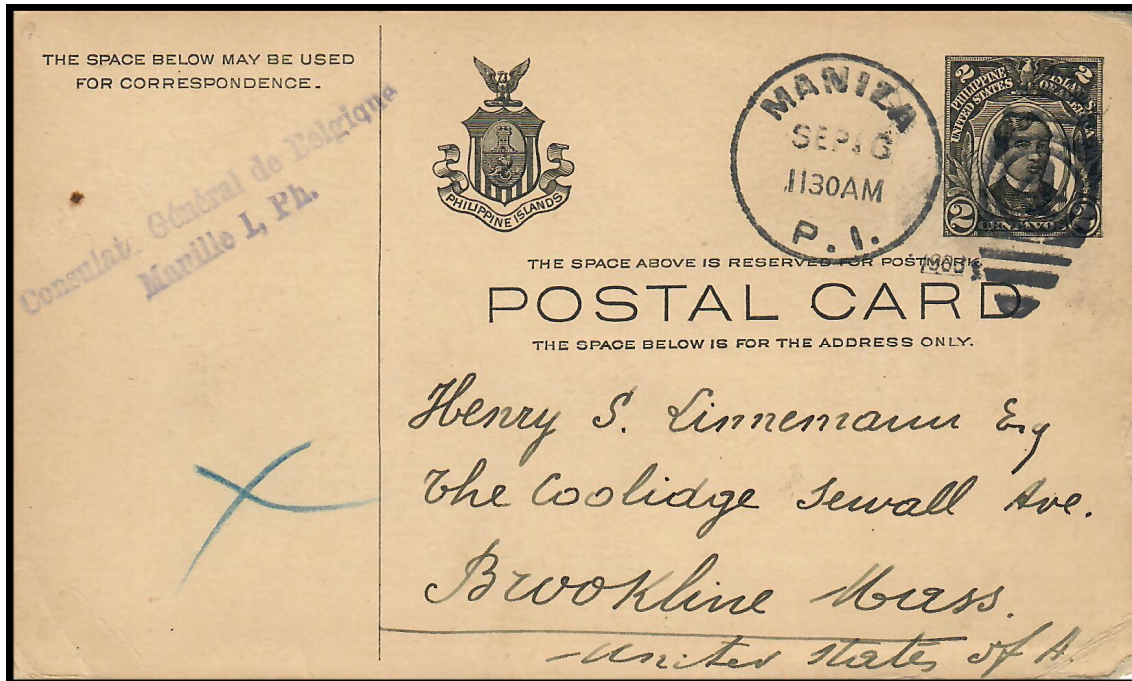 THE SPACE BELOW MAY BE USED
FOR CORRESPONDENCE.
Consulat Général de Belgique
Manille I, Ph.
PHILIPPINE ISLANDS
MANILA
SEP 16
1130AM
P. I.
1908
2 2
PHILIPPINE ISLANDS
UNITED STATES OF AMERICA
2 CENTAVOS 2
THE SPACE ABOVE IS RESERVED FOR POSTMARK.
POSTAL CARD
THE SPACE BELOW IS FOR THE ADDRESS ONLY.
Henry S. Linnemann Esq
The Coolidge Sewall Ave.
Brookline Mass.
United States of A.